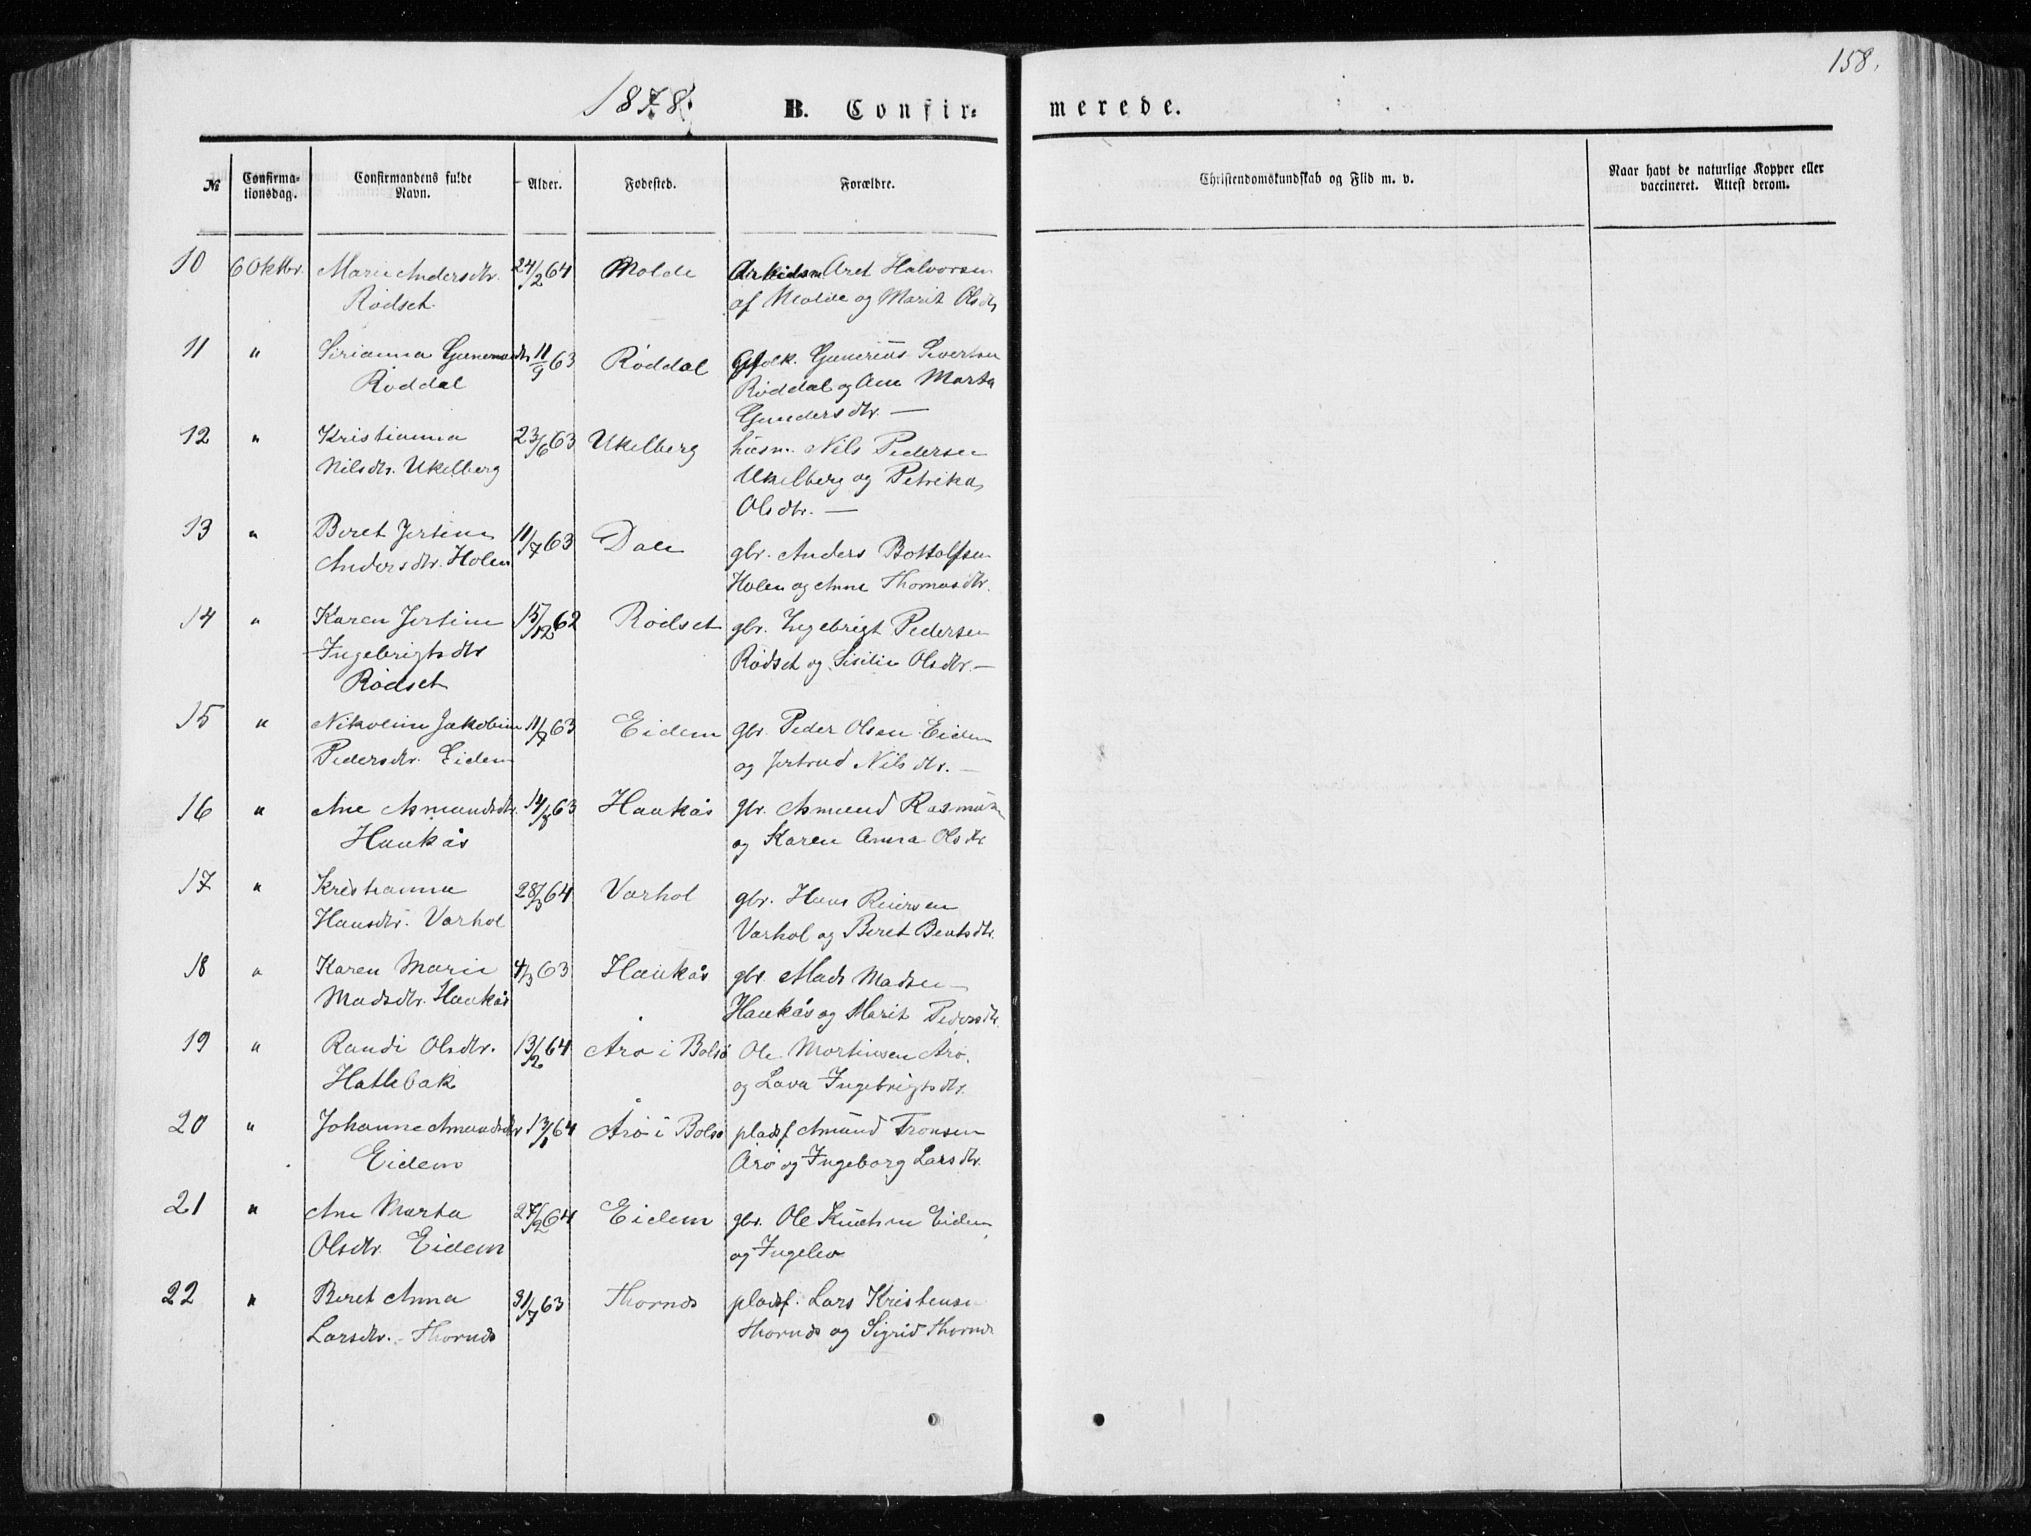 158.
1878.
B. Confir-merede.
№ Confirma-tionsdag. Confirmandens fulde Navn. Alder. Fødested. Forældre. Christendomskundskab og Flid m. v. Naar havt de naturlige Kopper eller vaccineret. Attest derom.
10 6 Oktbr. Marie Andersdtr. 24/2 64 Molde Aret Halvorsen
Rødset af Molde og Marit Olsdtr
11 " Sirianna 11/9 63 Røddal Gunerius Sivertsen
Røddal Røddal og Ane Marta
Gundersdtr. —
12 " Kristianna 23/6 63 Ukelberg husm. Nils Pedersen
Nilsdtr. Ukelberg Ukelberg og Petrika
Olsdtr. —
13 " Beret Jertine 11/7 63 Dale gbr. Anders Bottolfsen
Andersdtr. Holen Holen og Anne Thomasdtr.
14 " Karen Jertine 15/12 62 Rødset gbr. Ingebrigt Pedersen
Ingebrigtsdtr Rødset og Sisilie Olsdtr. —
Rødset
15 " Nikoline Jakobine 11/7 63 Eidem gbr. Peder Olsen Eidem
Pedersdtr. Eidem og Jertrud Nilsdtr. —
16 " Ane Asmundsdtr. 14/8 63 Haukås gbr. Asmund Rasmusen
Haukås og Karen Anna Olsdtr
17 " Kristianna 28/3 64 Varhol gbr. Hans Reiersen
Hansdtr. Varhol Varhol og Beret Bentsdtr.
18 " Karen Marie 4/3 63 Haukås gbr. Mads Madsen
Madsdtr. Haukås Haukås og Marit Pedersdtr.
19 " Randi Olsdtr. 13/2 64 Årø i Bolsø Ole Mortinsen Årø.
Hatlebak og Lava Ingebrigtsdtr.
20 " Johanne Amundsdtr 13/1 64 Årø i Bolsø pladsf. Amund Tronsen
Eidem Årø og Ingeborg Larsdtr.
21 " Ane Marta 27/2 64 Eidem gbr. Ole Knutsen Eidem
Olsdtr. Eidem og Ingelev
22 " Beret Anna 31/7 63 Thornds pladsf. Lars Kristensen
Larsdtr. Thornds Thornds og Sigrid Thornds